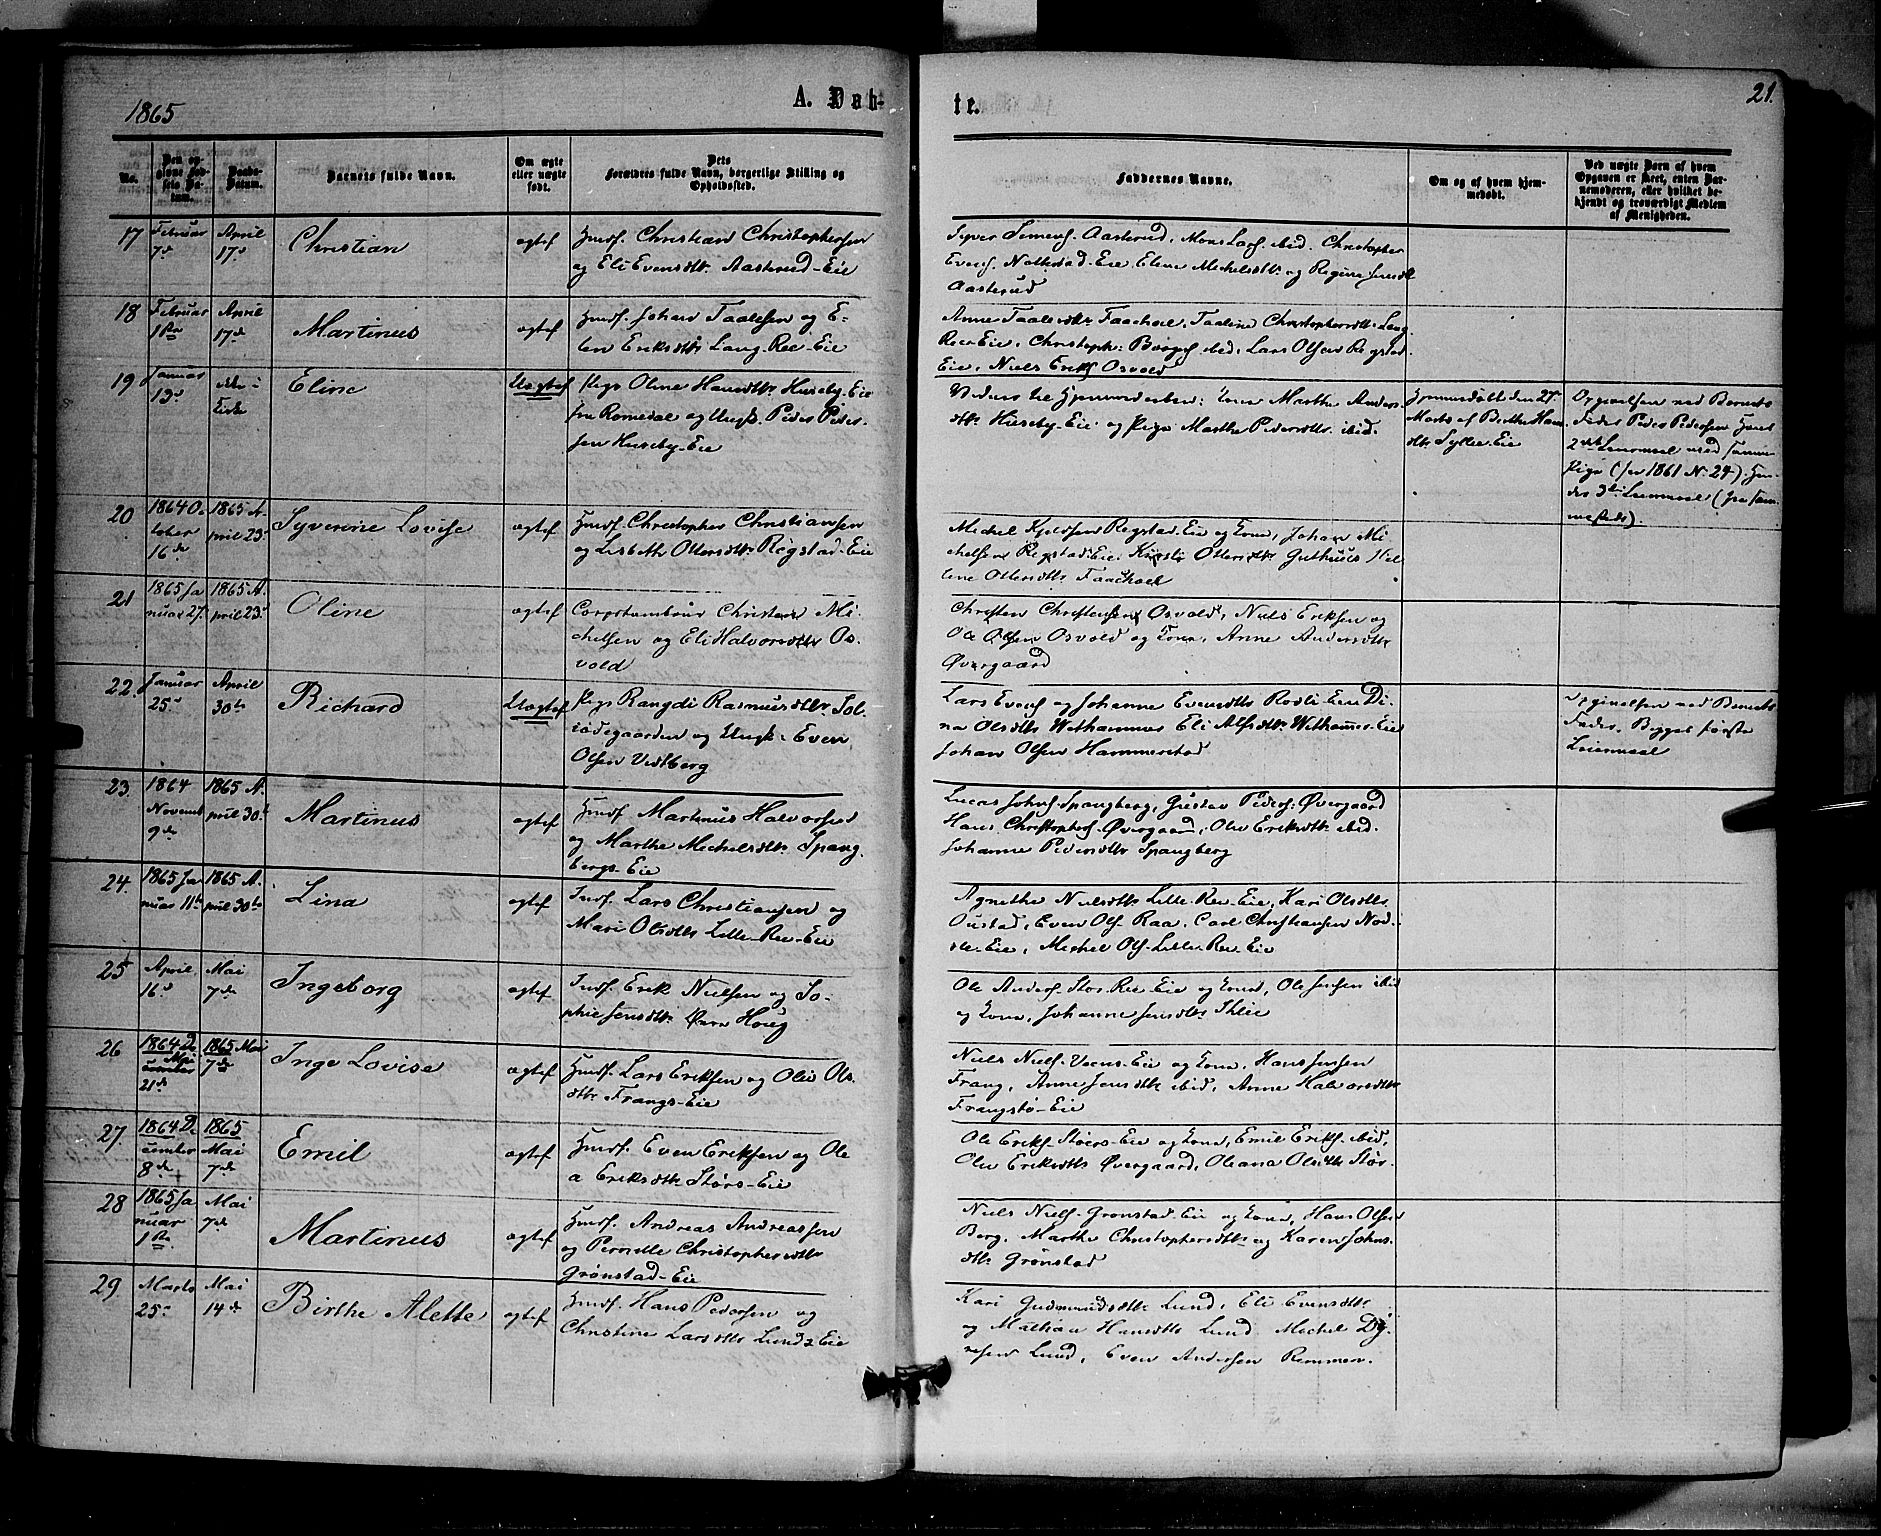 1865
A. Døb-
te.
21.
No.
Den opgivne Fødsels Datum.
Daabs-Datum.
Barnets fulde Navn.
Om ægte eller uægte født.
Dets Forældres fulde Navn, borgerlige Stilling og Opholdssted.
Faddernes Navne.
Om og af hvem hjemmedøbt.
Ved uægte Børn af hvem Opgaven er skeet, enten Barnemoderen, eller hvilket bekjendt og troværdigt Medlem af Menigheden.
17 Februar 7d April 17d Christian ægtef
Huusf. Christian Christophersen
og Eli Evensdtr. Aasterud-Eie
Syver Simens. Aasterud, Mons Lars. ibid. Christopher
Evens. Nøttestad-Eie, Elene Michelsdtr. og Regine Jensdtr
Aasterud
18 Februar 1ste April 17de Martinus ægtef
Huusf. Johan Taalesen og E-
len Eriksdtr. Lang-Ree-Eie
Anne Taalesdtr. Faachoel, Taaline Christophersdtr. Lang
Ree-Eie, Christoph. Børges. ibid, Lars Olsen Rogstad
Eie, Niels Eriks. Osvold
19 Januar 13d Eline Uægtef
Pige Oline Hansdtr. Huseby-Eie
fra Romedal og Ungk. Peder Peder-
sen Huseby-Eie
Vidner til Hjemmedaaben: Kone Marthe Anders
dtr. Huseby-Eie og Pige Marthe Pedersdtr. ibid.
Hjemmedøbt den 27
Marts af Berthe Han
dtr. Syllie-Eie
Opgivelsen ved Barnets
Fader Peder Pedersen Hans
2det Leiermaal med samme
Pige (sev 1861 No 24), Hen-
des 3die Leiermaal (fra sam-
mesteds).
20 1864 October 16de 1865 April 23d Syverine Lovise ægtef
Huusf. Christopher Christiansen
og Lisbeth Ottersdtr. Rogstad-Eie
Michel Kjeldsen Rogstad-Eie og Kone, Johan Mi-
chelsen Rogstad-Eie, Kirsti Ottersdtr. Guthuus Hel-
lene Ottersdtr. Faachoel
21 1865 Januar 27. 1865 April 23d Oline ægtef
Corpstambour Christian Mi-
chelsen og Eli Halvorsdtr. Os-
vold
Christen Christensen Osvold, Niels Eriksen og
Ole Olsen Osvold og Kone, Anne Andersdtr.
Øvergaard
22. Januar 25d April 30te Richard Uægtef
Pige Rangdi Rasmusdtr. Sol-
stadegaarden og Ungk. Even
Olsen Vestberg
Lars Evens. og Johanne Evensdtr. Rodli-Eie Di-
na Olsdtr. Wethammer Eli Alfsdtr. Wethammer-Eie
Johan Olsen Hammerstad
Opgivelsen ved Barnets
Fader, Begges første
Leiermaal
23 1864 Novemb 9de 1865 April 30te Martinus ægtef
Huusf. Martinus Halvorsen
og Marthe Michelsdtr. Spang-
bergs-Eie
Lucas Johns. Spangberg, Gustav Peders. Øvergaard
Hans Christophers. Øvergaard, Olea Eriksdtr. ibid.
Johanne Pedersdtr. Spangberg
24. 1865 Januar 11te 1865 April 30te Lina ægtef
Inds. Lars Christiansen og
Mari Olsdtr. Lille-Ree-Eie
Agnethe Nielsdtr. Lille-Ree-Eie, Kari Olsdtr.
Oustad, Even Ols. Raa, Carl Christiansen Nod-
sle-Eie, Michel Ols. Lille-Ree-Eie
25 April 16d Mai 7de Ingeborg ægtef
Inds. Erik Nielsen og So-
phie Jensdtr. Øvre Houg
Ole Anders. Stor-Ree-Eie og Kone, Ole Jensen ibid
og Kone, Johanne Jensdtr. Ihlie
26 1864 December 21de 1865 Mai 7de Inge Lovise ægtef
Huusf. Lars Eriksen og Olea Ols-
dtr. Frangs-Eie
Niels Niels. Veens-Eie og Kone, Hans Jensen
Frang, Anne Jensdtr. ibid, Anne Halvorsdtr.
Frangstø-Eie
27. 1864 December 8de 1865 Mai 7de Emil ægtef
Huusf. Even Eriksen og Ole-
a Eriksdtr. Størs-Eie
Ole Eriks. Størs-Eie og Kone, Emil Eriks. ibid,
Olea Eriksdtr. Øvergaard, Oleana Olsdtr. Stør.
28 1865 Januar 1ste Mai 7de Martinus ægtef
Huusf. Andreas Andreassen
og Pernille Christophersdtr.
Grønstad-Eie
Niels Niels. Grønstad-Eie og Kone, Hans Olsen
Berg, Marthe Christophersdtr. og Karen Johns-
dtr. Grønstad
29 Marts 25d Mai 14de Birthe Alette ægtef
Huusf. Hans Pedersen og
Christine Larsdtr. Lunds Eie
Kari Gudmundsdtr. Lund, Eli Evensdtr.
og Mathea Hansdtr. Lund Michel Dy-
resen Lund, Even Andersen Remmen.